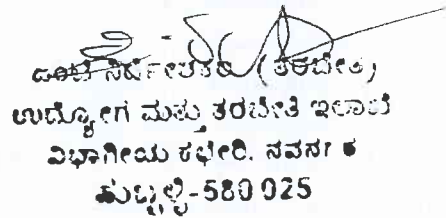 ಜಂಟಿ ನಿರ್ದೇಶಕರು (ತರಬೇತಿ)
ಉದ್ಯೋಗ ಮತ್ತು ತರಬೇತಿ ಇಲಾಖೆ
ವಿಭಾಗೀಯ ಕಛೇರಿ. ನವನಗರ
ಹುಬ್ಬಳ್ಳಿ-580 025